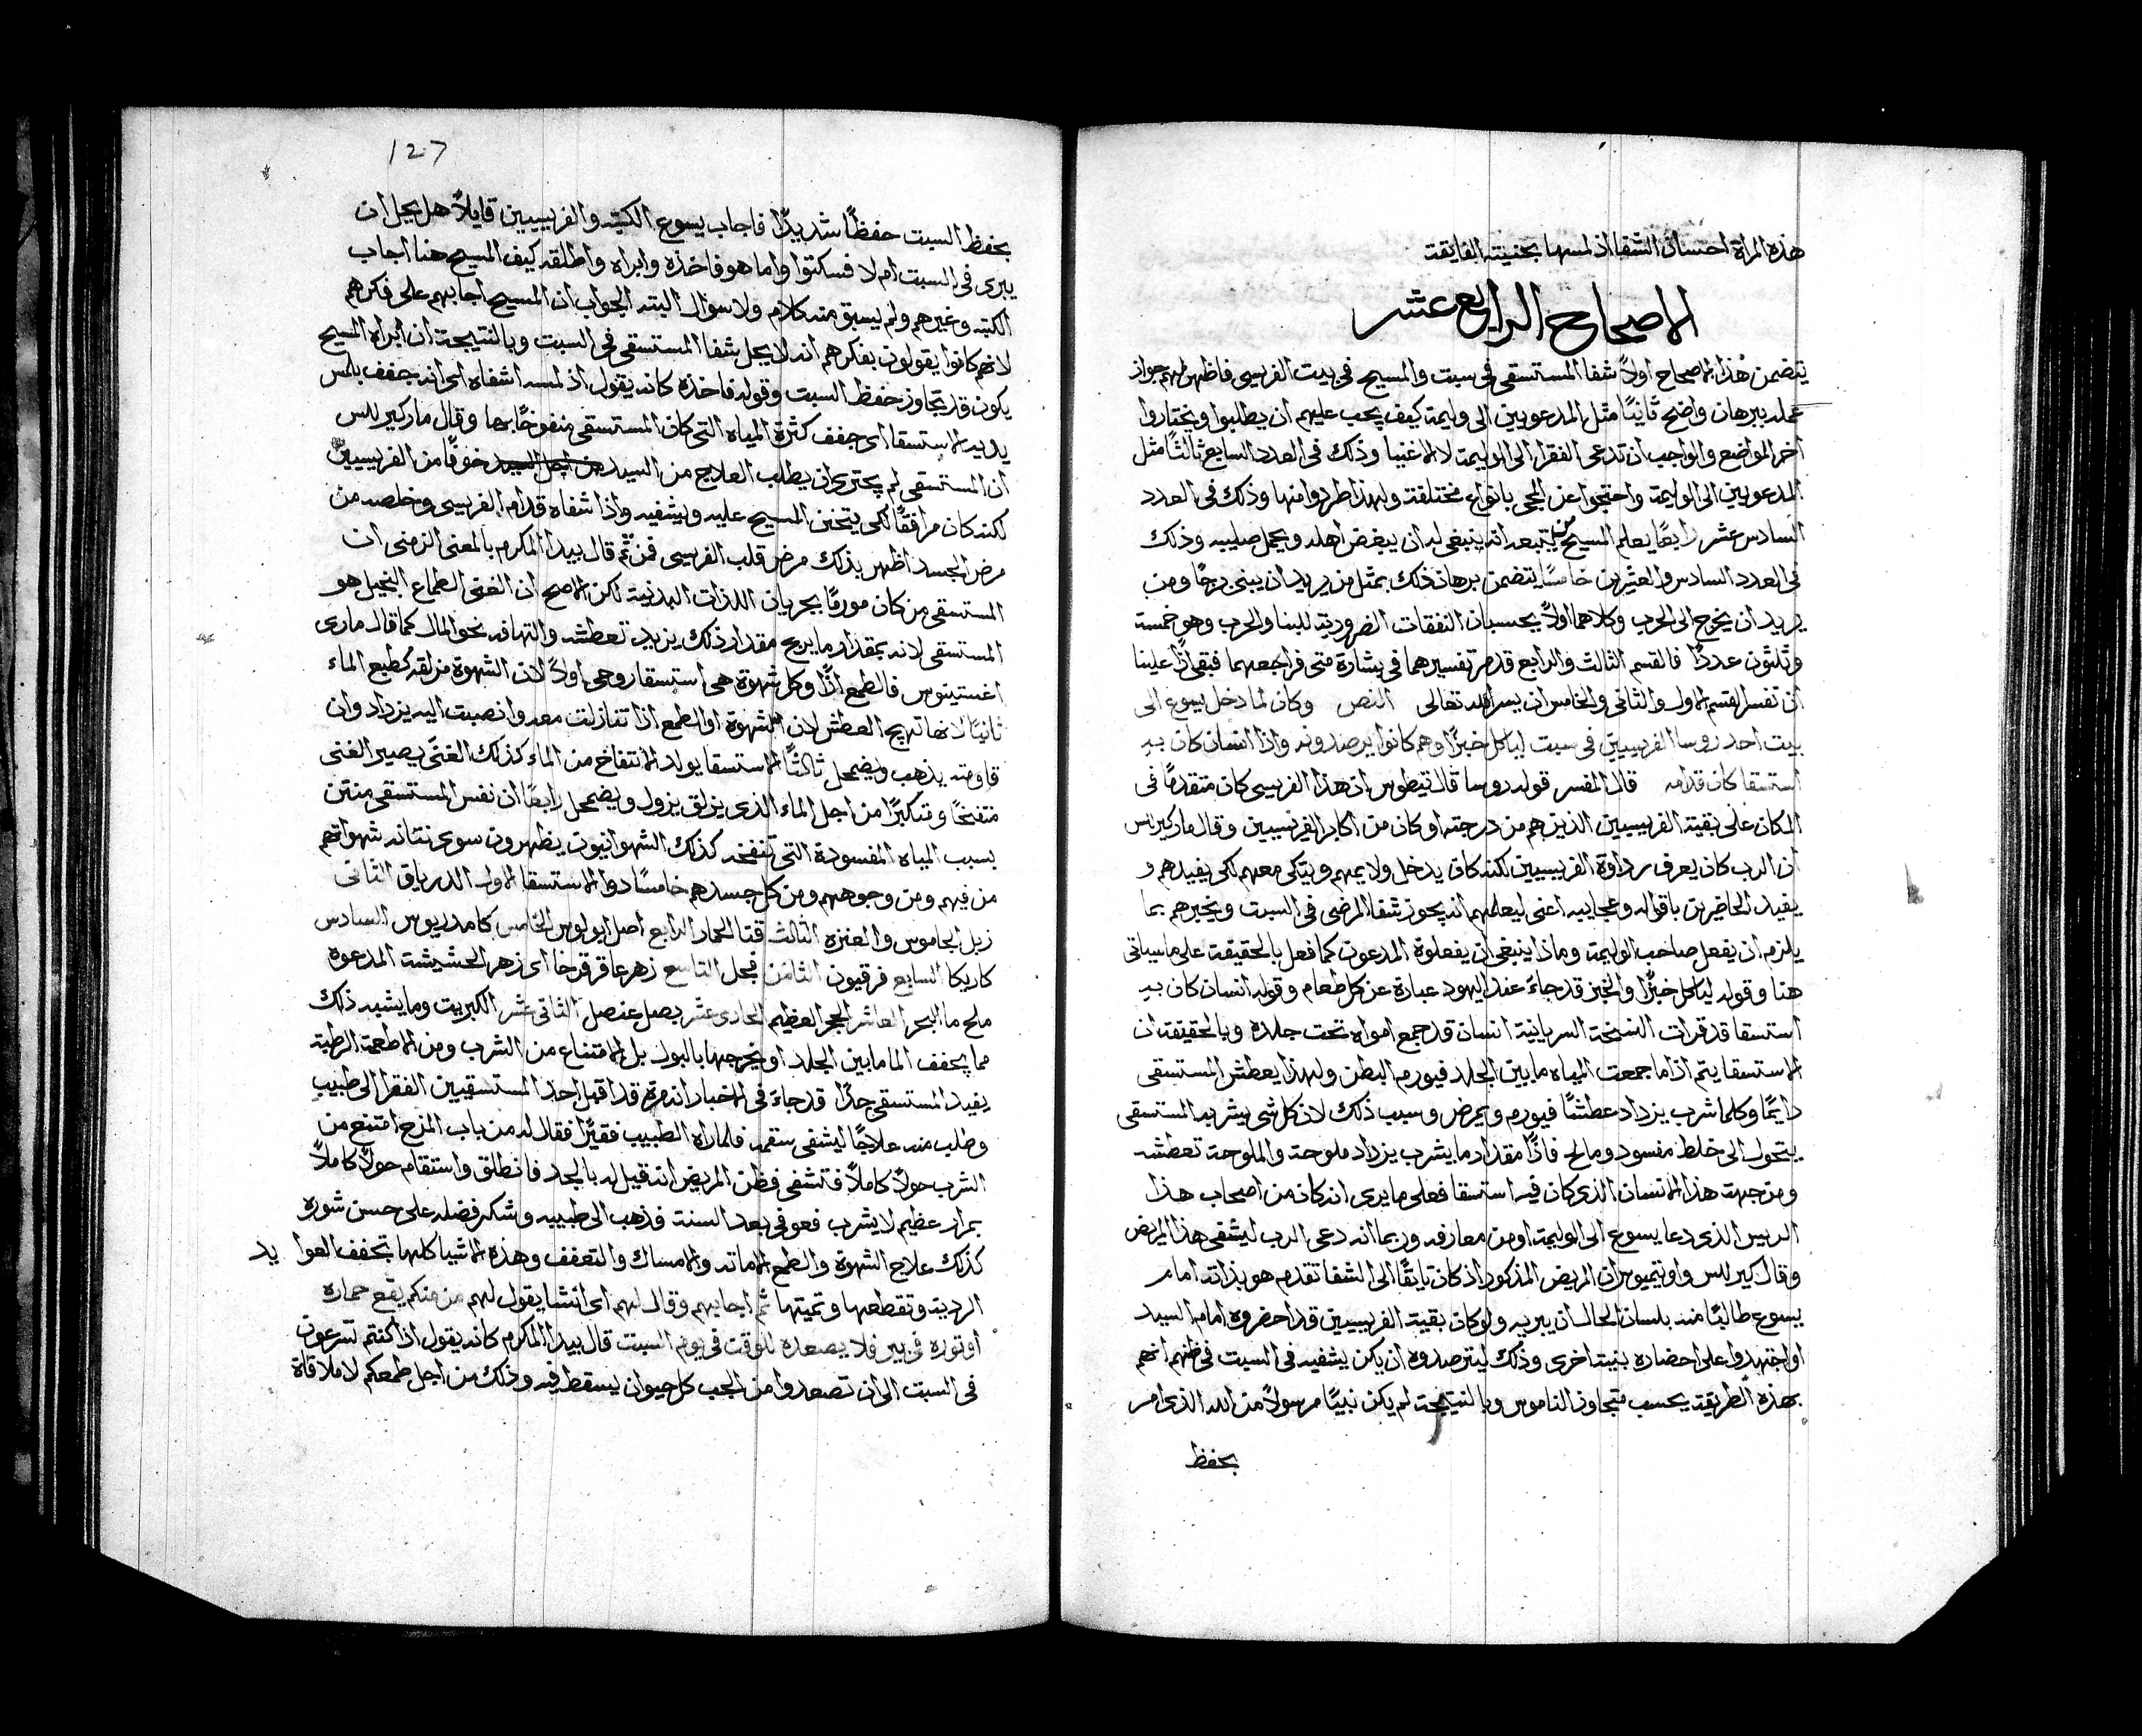 هذه المراة احسان الشفا اذ لمسها بحنيته الفايقة
الاصحاح الرابع عشر
يتضمن هذا الاصحاح اولاً شفا المستسقي في سبت والمسيح في بيت الفريسي فاظهر لهم جواز
عمله ببرهان واضح ثانيًا مثل المدعويين الى وليمة كيف يجب عليهم ان يطلبوا ويختاروا
اخر المواضع والواجب ان تدعى الفقرا الى الوليمة لا الاغنيا وذلك في العدد السابع ثالثًا مثل
المدعويين الى الوليمة واحتجوا عن المجي بانواع مختلفة ولهذا طردوا منها وذلك في العدد
السادس عشر رابعًا يعلم المسيح من يتبعه انه ينبغي له ان يبغض اهله ويحمل صليبه وذلك
في العدد السادس والعشرين خامسًا يتضمن برهان ذلك بمثل من يريد ان يبني برجًا ومن
يريد ان يخرج الى الحرب وكلاهما اولاً يحسبان النفقات الضرورية للبنا والحرب وهو خمسة
وثلثون عددًا فالقسم الثالث والرابع قد مر تفسيرهما في بشارة متى فراجعهما فبقي اذًا علينا
ان نفسر القسم الاول والثاني والخامس ان يسر الله تعالى النص وكان لما دخل يسوع الى
بيت احد روسا الفريسيين في سبت لياكل خبزًا وهم كانوا يرصدونه واذا انسان كان به
استسقا كان قدامه قال المفسر قوله روسا قال تيطوس ان هذا الفريسي كان متقدمًا في
المكان على بقية الفريسيين الذين هم من درجته او كان من اكابر الفريسيين وقال مار كيرلس
ان الرب كان يعرف رداوة الفريسيين لكنه كان يدخل ولايمهم ويتكي معهم لكي يفيدهم و
يفيد الحاضرين باقواله وعجايبه اعني ليعلمهم انه يجوز شفا المرضى في السبت ويخبرهم بما
يلزم ان يفعل صاحب الوليمة وماذا ينبغي ان يفعلوه المدعوون كما فعل بالحقيقة على ما سياتي
هنا وقوله لياكل خبزًا والخبز قد جاء عند اليهود عبارة عن كل طعام وقوله انسان كان به
استسقا قد قرات النسخة السريانية انسان قد جمع امواه تحت جلده وبالحقيقة ان
الاستسقا يتم اذا ما جمعت المياه ما بين الجلد فيورم البطن ولهذا يعطش المستسقي
دايمًا وكلما شرب يزداد عطشًا فيورم ويمرض وسبب ذلك لان كل شي يشربه المستسقي
يتحول الى خلط مفسود ومالح فاذًا مقدار ما يشرب يزداد ملوحة والملوحة تعطشه
ومن جهة هذا الانسان الذي كان فيه استسقا فعلى ما يرى انه كان من اصحاب هذا
الريس الذي دعا يسوع الى الوليمة او من معارفه وربما انه دعى الرب ليشفي هذا المريض
وقال كيرلس واوتيميوس ان المريض المذكور اذ كان تايقًا الى الشفا تقدم هو بذاته امام
يسوع طالبًا منه بلسان الحال ان يبريه ولو كان بقية الفريسيين قد احضروه امام السيد
او اجتهدوا على احضاره بنية اخرى وذلك ليترصدوه ان يكن يشفيه في السبت في ظنهم انهم
بهذه الطريقة يحسب متجاوز الناموس وبالنتيجة لم يكن نبيًا مرسولاً من الله الذي امر
بحفظ
127
بحفظ السبت حفظًا شديدًا فاجاب يسوع الكتبه والفريسيين قايلاً هل يحل ان
يبرى في السبت ام لا فسكتوا واما هو فاخذه وابراه واطلقه كيف المسيح هنا اجاب
الكتبه وغيرهم ولم يسبق منه كلام ولا سوال البته الجواب ان المسيح اجابهم على فكرهم
لانهم كانوا يقولون بفكرهم انه لا يحل شفا المستسقي في السبت وبالنتيجة ان ابراه المسيح
يكون قد تجاوز حفظ السبت وقوله فاخذه كانه يقول اذ لمسه اشفاه اي انه جفف بلمس
يديه الاستسقا اي جفف كثرة المياه التي كان المستسقي منفوخًا بها وقال مار كيرلس
ان المستسقي لم يجتري ان يطلب العلاج من السيد من اجل السبت خوفًا من الفريسيين
لكنه كان مرافقًا لكي يتحنن المسيح عليه ويشفيه واذا شفاه قدام الفريسي وخلصه من
مرض الجسد اظهر بذلك مرض قلب الفريسي فمن ثم قال بيدا المكرم بالمعنى الرمزي ان
المستسقي من كان مورمًا بجريان اللذات البدنية لكن الاصح ان الغني الطماع البخيل هو
المستسقي لانه بمقدار ما يربح مقدار ذلك يزيد تعطشه والتهافه نحو المال كما قال ماري
اغستينوس فالطمع اذًا وكل شهوة هي استسقا روحي اولاً لان الشهوة مزلقه كطبع الماء
ثانيًا لانها تهيج العطش لان الشهوة او الطمع اذا تنازلت معه وانصبت اليه يزداد وان
قاومته يذهب ويضمحل ثالثًا الاستسقا يولد الانتفاخ من الماء كذلك الغنى يصير الغني
منتفخًا ومتكبرًا من اجل الماء الذي يزلق يزول ويضمحل رابعًا ان نفس المستسقي منتن
بسبب المياه المفسودة التي تنفخه كذلك الشهوانيون يظهرون سوى نتانه شهواتهم
من فيهم ومن وجوههم ومن كل جسدهم خامسًا دوا الاستسقا الاول الدرياق الثاني
زبل الجاموس والعنزه الثالث قتا الحمار الرابع اصل ابولوس الخامس كامدريوس السادس
كاريكا السابع فرقيون الثامن فجل التاسع زهر عاقر قرحا اي زهر الحشيشة المدعوه
ملح ما البحر العاشر الحجر العظيم الحادي عشر بصل عنصل الثاني عشر الكبريت وما يشبه ذلك
مما يجفف الما ما بين الجلد او يخرجها بالبول بل الامتناع من الشرب ومن الاطعمة الرطبة
يفيد المستسقي جدًا قد جاء في الاخبار انه مرة قد اقبل احد المستسقيين الفقرا الى طبيب
وطلب منه علاجًا ليشفي سقمه فلما راه الطبيب فقيرًا فقال له من باب المزح امتنع من
الشرب حولاً كاملاً فتشفى فظن المريض انه قيل له بالجد فانطلق واستقام حولاً كاملاً
بمراد عظيم لا يشرب فعوفي بعد السنة فذهب الى طبيبه وشكر فضله على حسن شوره
كذلك علاج الشهوة والطمع الاماته والامساك والتعفف وهذه الاشيا كلها تجفف العوايد
الردية وتقطعها وتميتها ثم اجابهم وقال لهم اي انشا يقول لهم من منكم يقع حماره
او ثوره في بير فلا يصعده للوقت في يوم السبت قال بيدا المكرم كانه يقول اذا كنتم تسرعون
في السبت الى ان تصعدوا من الجب كل حيوان يسقط فيه وذلك من اجل طمعكم لا ملاقاة